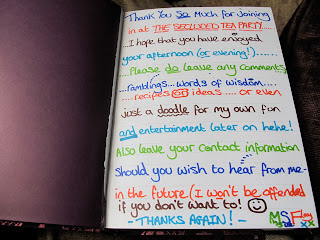 Thank You So Much for Joining
in at THE SECLUDED TEA PARTY....
...I hope that you have enjoyed
your afternoon (or evening!).......
....Please do leave any comments,
...ramblings... words of wisdom....
.... recipes OR ideas .... or even
just a doodle for my own fun
and entertainment later on hehe!
Also leave your contact information
should you wish to hear from me-
in the future (I won't be offended
if you don't want to! ☺
-THANKS AGAIN! -